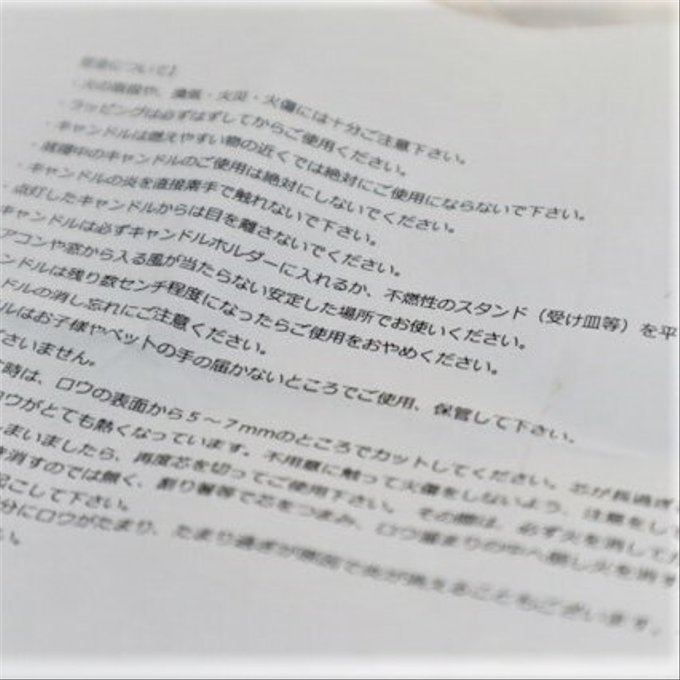 ・火の取扱や、換気・火災・火傷には十分ご注意下さい。
・ラッピングは必ずはずしてからご使用ください。
・キャンドルは燃えやすい物の近くでは絶対にご使用にならないで下さい。
・就寝中のキャンドルのご使用は絶対にしないでください。
・キャンドルの炎を直接素手で触れないで下さい。
・点灯したキャンドルからは目を離さないでください。
キャンドルは必ずキャンドルホルダーに入れるか、不燃性のスタンド（受け皿等）を平
アコンや窓から入る風が当たらない安定した場所でお使いください。
ンドルは残り数センチ程度になったらご使用をおやめください。
ドルの消し忘れにご注意ください。
ルはお子様やペットの手の届かないところでご使用、保管して下さい。
ざいません。
時は、ロウの表面から５～７mmのところでカットしてください。芯が長過ぎ
ロウがとても熱くなっています。不用意に触って火傷をしないよう、注意をして
まいましたら、再度芯を切ってご使用下さい。その際は、必ず火を消して
を消すのでは無く、割り箸等で芯をつまみ、ロウ溜まりの中へ倒し火を消す
起こして下さい。
分にロウがたまり、たまり過ぎが原因で炎が消えることもございます。